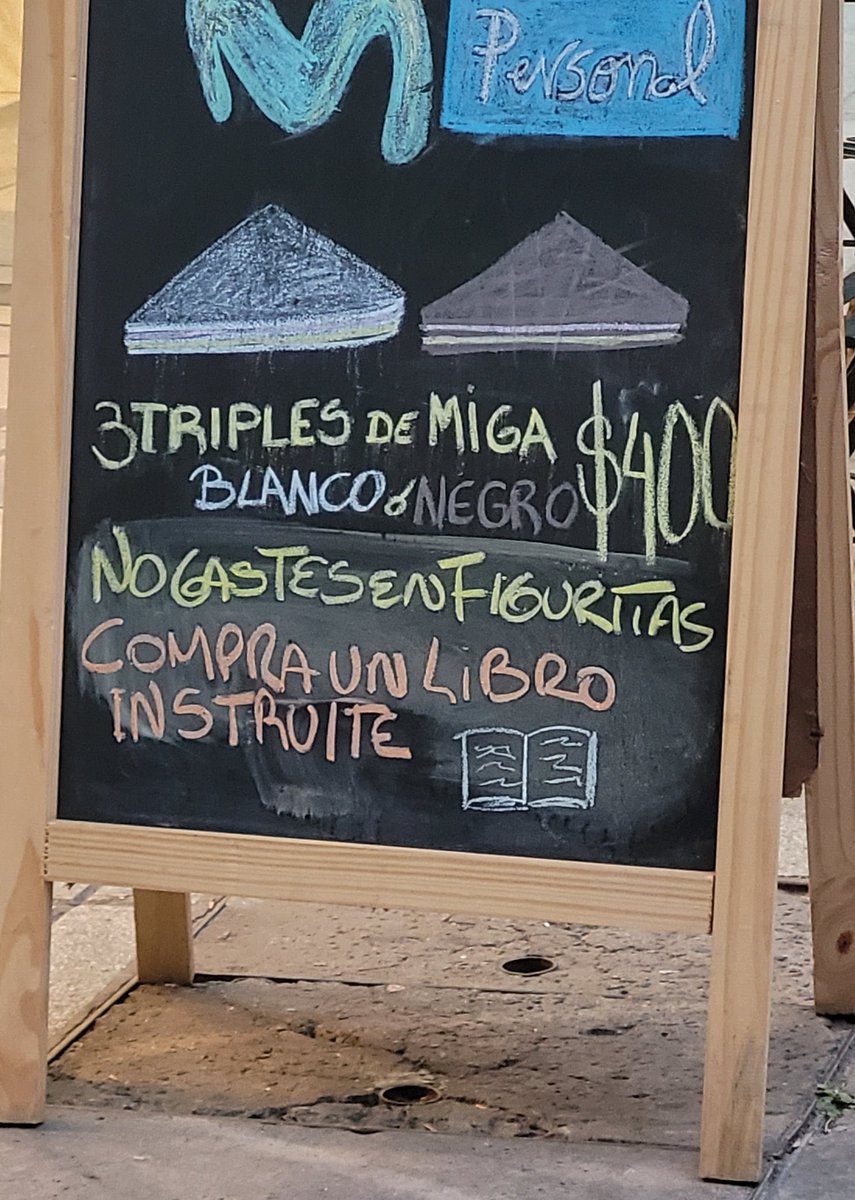 Personal
3 TRIPLES DE MiGA $400
BLANCO ó NEGRO
NO GASTES EN FIGURITAS
COMPRA UN LiBRO
INSTRUITE